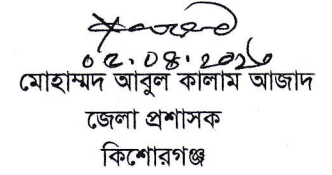 ০৫.০৪.২০২৩
মোহাম্মদ আবুল কালাম আজাদ
জেলা প্রশাসক
কিশোরগঞ্জ